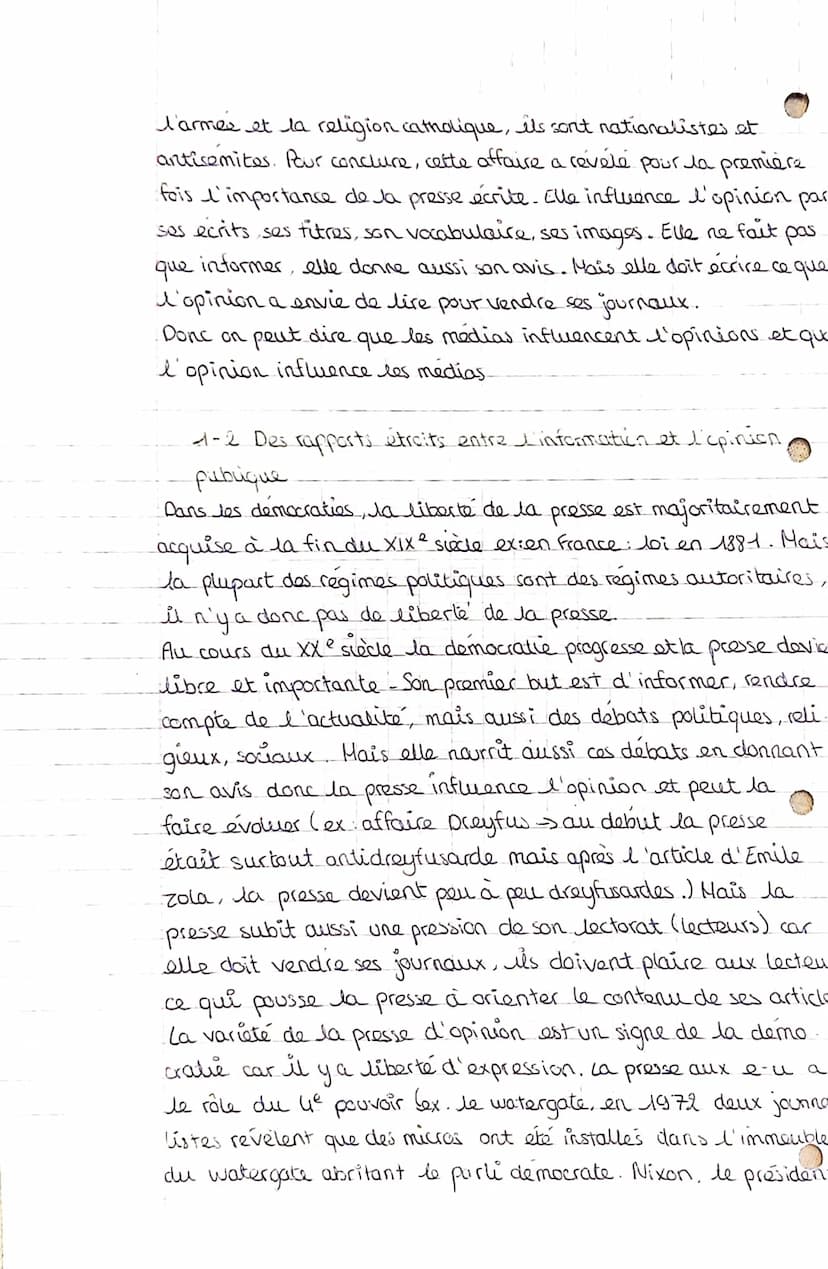 l'armée et la religion catholique, ils sont nationalistes et
antisémites. Pour conclure, cette affaire a révélé pour la première
fois l'importance de la presse écrite. Elle influence l'opinion par
ses écrits ses titres, son vocabulaire, ses images. Elle ne fait pas
que informer, elle donne aussi son avis. Mais elle doit écrire ce que
l'opinion a envie de lire pour vendre ses journaux.
Donc on peut dire que les médias influencent l'opinions et qu
l'opinion influence les médias
1-2 Des rapports étroits entre l'information et l'opinion
publique
Dans les démocraties, la liberté de la presse est majoritairement
acquise à la fin du XIXe siècle ex: en France: loi en 1881. Mais
la plupart des régimes politiques sont des régimes autoritaires,
il n'y a donc pas de liberté de la presse.
Au cours du XXe siècle la démocratie progresse et la presse devie
libre et importante - Son premier but est d'informer, rendre
compte de l'actualité, mais aussi des débats politiques, reli-
gieux, sociaux. Mais elle nourrit aussi ces débats en donnant
son avis donc la presse influence l'opinion et peut la
faire évoluer (ex: affaire Dreyfus → au debut la presse
était surtout antidreyfusarde mais après l'article d'Emile
Zola, la presse devient peu à peu dreyfusardes.) Mais la
presse subit aussi une pression de son lectorat (lecteurs) car
elle doit vendre ses journaux, ils doivent plaire aux lecteu
ce qui pousse la presse à orienter le contenu de ses article
La variété de la presse d'opinion est un signe de la démo-
cratie car il y a liberté d'expression. La presse aux e-u a
le rôle du 4e pouvoir (ex. le watergate, en 1972 deux journa
listes révèlent que des micros ont été installés dans l'immeuble
du watergate abritant le parti démocrate. Nixon, le présiden